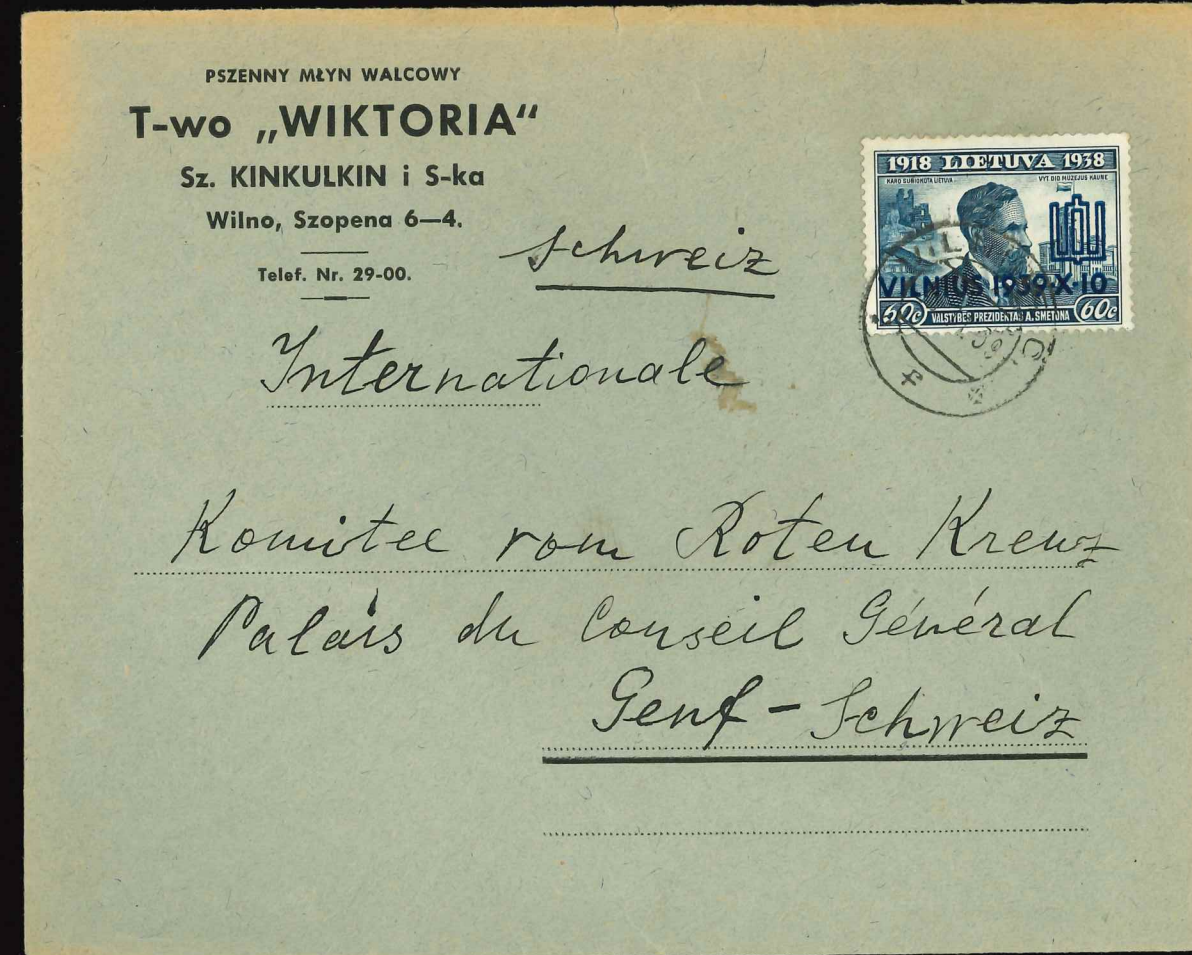 PSZENNY MŁYN WALCOWY
T-wo „WIKTORIA“
Sz. KINKULKIN i S-ka
Wilno, Szopena 6—4.
Telef. Nr. 29-00.
Schweiz
1918 LIETUVA 1938
KARO SUNIOKOTA LIETUVA VYT. DID. MUZEJUS KAUNE
VILNIUS 1939-X-10
60c VALSTYBĖS PREZIDENTAS A. SMETONA 60c
Internationale
Komitee vom Roten Kreuz
Palais du Conseil Général
Genf – Schweiz